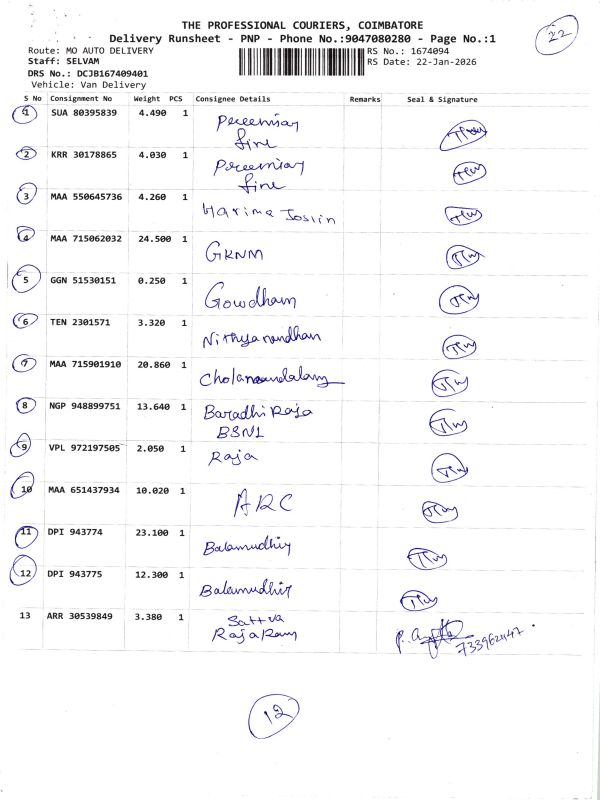 THE PROFESSIONAL COURIERS, COIMBATORE
Delivery Runsheet - PNP - Phone No.:9047080280 - Page No.:1
22
Route: MO AUTO DELIVERY
RS No.: 1674094
Staff: SELVAM
RS Date: 22-Jan-2026
DRS No.: DCJB167409401
Vehicle: Van Delivery
S No Consignment No Weight PCS Consignee Details Remarks Seal & Signature
1 SUA 80395839 4.490 1
2 KRR 30178865 4.030 1
3 MAA 550645736 4.260 1
4 MAA 715062032 24.500 1 GKNM
5 GGN 51530151 0.250 1 Gowdham
6 TEN 2301571 3.320 1 Nithyanandhan
7 MAA 715901910 20.860 1 Cholamandalam
8 NGP 948899751 13.640 1 Baradhi Raja
BSNL
9 VPL 972197505 2.050 1 Raja
10 MAA 651437934 10.020 1 ARC
11 DPI 943774 23.100 1
12 DPI 943775 12.300 1
13 ARR 30539849 3.380 1 Sattva
Raja Ram
12